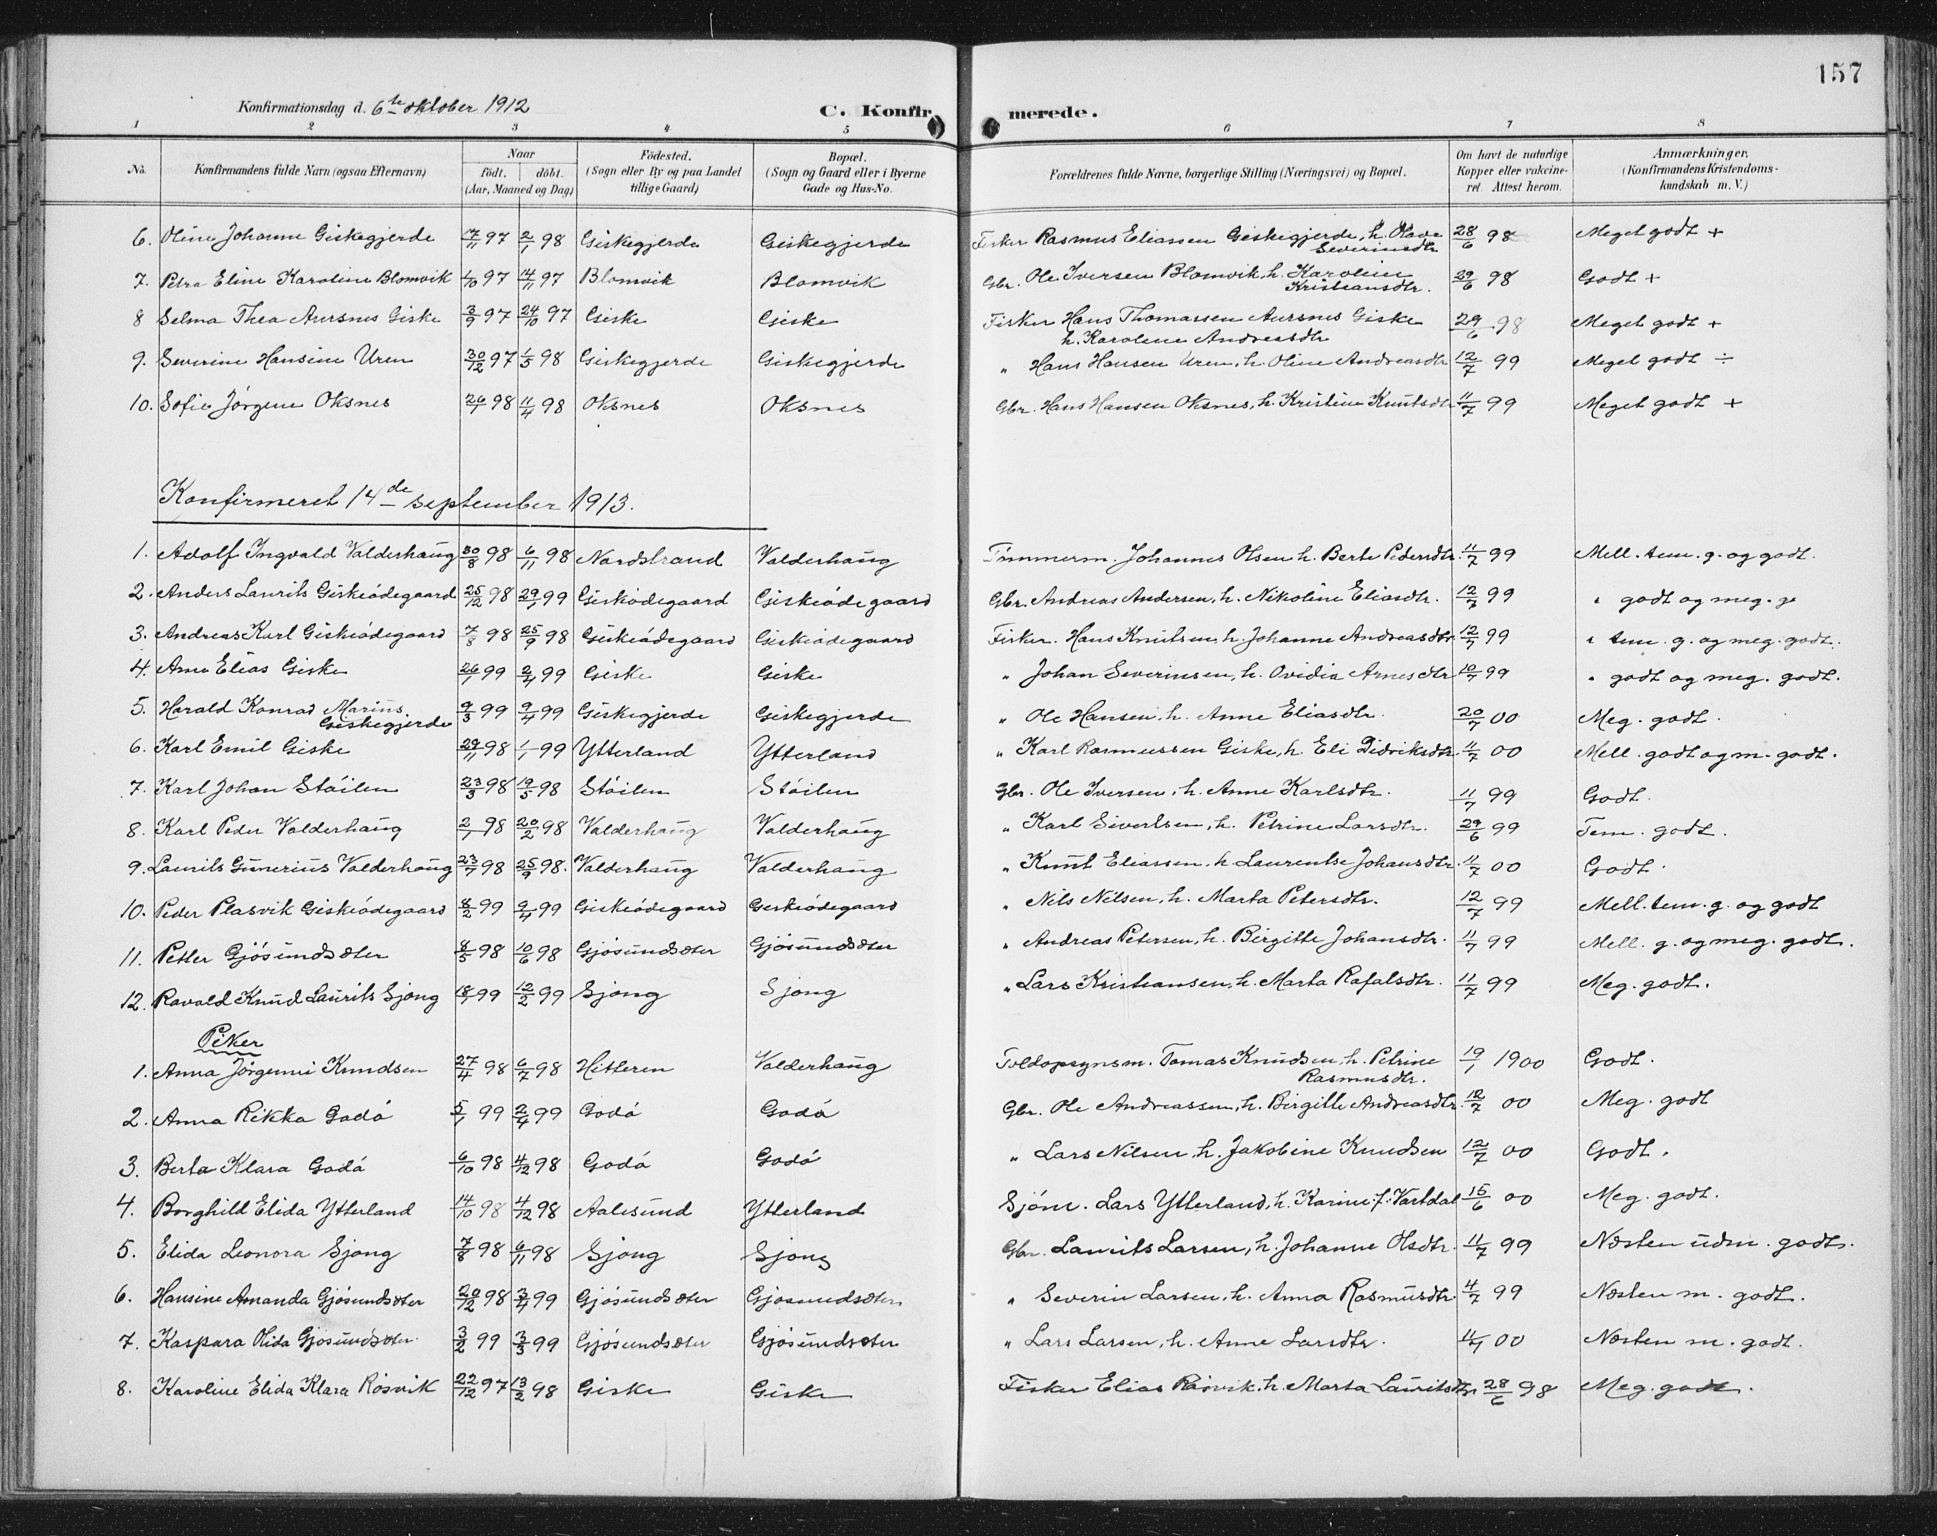 157
Konfirmationsdag d. 6te oktober 1912 C. Konfirmerede.
1 2 3 4 5 6 7 8
No. Konfirmandens fulde Navn (ogsaa Efternavn) Naar født. døbt. (Aar, Maaned og Dag) Fødested. (Sogn eller By og paa Landet tillige Gaard) Bopæl. (Sogn og Gaard eller i Byerne Gade og Hus-No. Forældrenes fulde Navne, borgerlige Stilling (Næringsvei) og Bopæl. Om havt de naturlige Kopper eller vakcineret. Attest herom. Anmærkninger. (Konfirmandens Kristendomskundskab m. V.)
6. Oline Johanne Giskegjerde 17/11 97 2/1 98 Giskegjerde Giskegjerde Fisker Rasmus Eliassen Giskegjerde, h. Olave Severinsdtr 28/6 98 Meget godt +
7. Petra Eline Karoline Blomvik 1/10 97 14/11 97 Blomvik Blomvik Gbr. Ole Iversen Blomvik, h. Karoline Kristiansdtr. 29/6 98 Godt +
8 Selma Thea Aursnes Giske 3/9 97 24/10 97 Giske Giske Fisker Hans Thomassen Aursnes Giske h. Karoline Andreasdtr 29/6 98 Meget godt +
9. Severine Hansine Uren 30/12 97 1/5 98 Giskegjerde Giskegjerde " Hans Hansen Uren, h. Oline Andreasdtr 12/7 99 Meget godt ÷
10. Sofie Jørgine Oksnes 26/1 98 11/4 98 Oksnes Oksnes Gbr. Hans Hansen Oksnes, h. Kristine Knutsdtr 11/7 99 Meget godt +
Konfirmeret 14de september 1913.
1. Adolf Ingvald Valderhaug 30/8 98 6/11 98 Nordstrand Valderhaug Tømmerm. Johannes Olsen h. Berte Pedersdtr. 11/7 99 Mell. tem. g. og godt.
2. Anders Laurits Giskeødegaard 25/12 98 29/1 99 Giskeødegaard Giskeødegaard Gbr. Andreas Andersen, h. Nikoline Eliasdtr. 12/7 99 " godt og meg. g
3. Andreas Karl Giskeødegaard 7/8 98 25/9 98 Giskeødegaard Giskeødegaard Fisker. Hans Knutsen, h. Johanne Andreasdtr 12/7 99 " tem. g. og meg. godt.
4. Arne Elias Giske 26/1 99 2/4 99 Giske Giske " Johan Severinsen, h. Ovidia Arnesdtr 10/7 99 " godt og meg. godt.
5. Harald Konrad Marius Giskegjerde 9/3 99 9/4 99 Giskegjerde Giskegjerde " Ole Hansen, h. Anne Eliasdtr. 20/7 00 Meg. godt.
6. Karl Emil Giske 29/11 98 1/1 99 Ytterland Ytterland " Karl Rasmussen Giske, h. Eli Didriksdtr. 11/7 00 Mell. godt og m. godt.
7. Karl Johan Støilen 23/3 98 19/5 98 Støilen Støilen Gbr. Ole Iversen, h. Anne Karlsdtr. 11/7 99 Godt.
8. Karl Peder Valderhaug 2/1 98 20/2 98 Valderhaug Valderhaug " Karl Sivertsen, h. Petrine Larsdtr. 29/6 99 Tem. godt.
9. Laurits Gunerius Valderhaug 23/7 98 25/9 98. Valderhaug Valderhaug " Knut Eliassen, h. Laurentse Johansdtr. 11/7 00 Godt.
10. Peder Plasvik Giskeødegaard 8/2 99 9/4 99 Giskeødegaard Geskeødegaard " Nils Nilsen, h. Marta Petersdtr. 12/7 99 Mell. tem. g. og godt
11. Petter Gjøsundsæter 8/5 98 10/6 98 Gjøsundsæter Gjøsundsæter " Andreas Petersen, h. Birgitte Johansdtr. 11/7 99 Mell. g. og meg. godt.
12. Ravald Knud Laurits Sjong 18/1 99 12/2 99 Sjong Sjong " Lars Kristiansen, h. Marta Rafalsdtr. 11/7 99 Meg. godt.
Piker
1. Anna Jørgenni Knudsen 27/4 98 6/7 98 Hitteren Valderhaug Toldopsynsm. Tomas Knudsen, h. Petrine Rasmusdtr. 19/1 1900 Godt.
2. Anna Rikka Godø 5/1 99 2/4 99 Godø Godø Gbr. Ole Andreassen, h. Birgitte Andreasdtr. 12/7 00 Meg. godt
3. Berta Klara Godø 6/10 98 4/12 98 Godø Godø " Lars Nilsen, h. Jakobine Knudsen 12/7 00 Godt.
4. Borghild Elida Ytterland 14/10 98 4/12 98 Aalesund Ytterland Sjøm. Lars Ytterland, h. Karine f. Vartdal 15/6 00 Meg. godt.
5. Elida Leonora Sjong 7/8 98 6/11 98 Sjong Sjong Gbr. Laurits Larsen, h. Johanne Olsdtr. 11/7 99 Næsten udm. godt.
6. Hansine Amanda Gjøsundsæter 20/12 98 3/4 99 Gjøsundsæter Gjøsundsæter " Severin Larsen, h. Anna Rasmusdtr. 4/7 99 Næsten m. godt.
7. Kaspara Olida Gjøsundsæter 3/2 99 3/3 99 Gjøsundsæter Gjøsundsæter " Lars Larsen, h. Anne Larsdtr. 4/7 00 Næsten m. godt.
8. Karoline Elida Klara Røsvik 22/12 97 13/2 98 Giske Giske Fisker Elias Røsvik, h. Marta Lauritsdtr 28/6 98 Meg. godt.